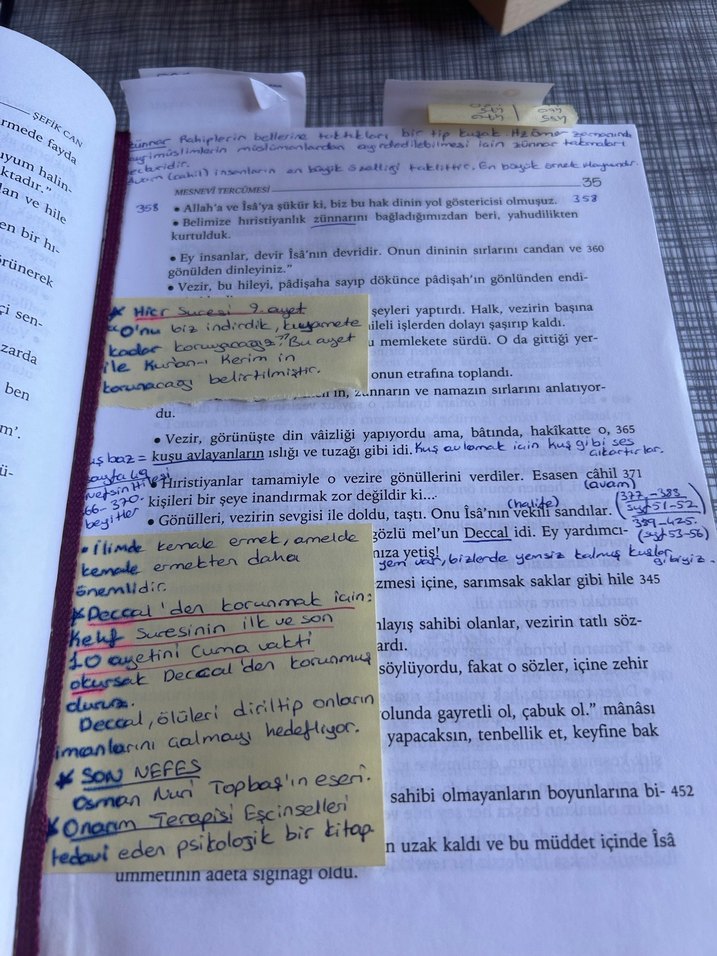 ŞEFİK CAN
rmede fayda
uyum halin-
ktadır."
lan ve hile
en bir hı-
rünerek
çi sen-
zarda
ben
m'.
ü-
zünnar Rahiplerin bellerine taktıkları bir tip kuşak. Hz Ömer zamanında
gayrimüslimlerin müslümanlardan ayırdedilebilmesi için zünnar takmaları
(cahil) insanların en büyük özelliği taklittir. En büyük örnek olayıdır.
MESNEVÎ TERCÜMESİ 35
358 • Allah'a ve Îsâ'ya şükür ki, biz bu hak dinin yol göstericisi olmuşuz. 358
• Belimize hıristiyanlık zünnarını bağladığımızdan beri, yahudilikten
kurtulduk.
• Ey insanlar, devir Îsâ'nın devridir. Onun dininin sırlarını candan ve 360
gönülden dinleyiniz."
• Vezir, bu hileyi, pâdişaha sayıp dökünce pâdişah'ın gönlünden endi-
şeyleri yaptırdı. Halk, vezirin başına
hileli işlerden dolayı şaşırıp kaldı.
memlekete sürdü. O da gittiği yer-
onun etrafına toplandı.
zünnarın ve namazın sırlarını anlatıyor-
du.
* Hicr Suresi 9. ayet
"O'nu biz indirdik, kıyamete
kadar koruyacağız" Bu ayet
ile Kur'an-ı Kerim in
korunacağı belirtilmiştir.
• Vezir, görünüşte din vâizliği yapıyordu ama, bâtında, hakîkatte o, 365
kuşu avlayanların ıslığı ve tuzağı gibi idi. Kuş avlamak için kuş gibi ses
çıkartırlar.
kuş baz =
sayfa 49
66-370.
beyitler
• Hıristiyanlar tamamiyle o vezire gönüllerini verdiler. Esasen câhil 371
(avam)
kişileri bir şeye inandırmak zor değildir ki...
(377-383
syf 51-52)
(halife)
• Gönülleri, vezirin sevgisi ile doldu, taştı. Onu Îsâ'nın vekîli sandılar.
389-425.
(syf 53-56)
gözlü mel'un Deccal idi. Ey yardımcı-
mıza yetiş!
yem var, bizlerde yemsiz kalmış kuşlar
gibiyiz.
zmesi içine, sarımsak saklar gibi hile 345
nlayış sahibi olanlar, vezirin tatlı söz-
ardı.
söylüyordu, fakat o sözler, içine zehir
olunda gayretli ol, çabuk ol." mânâsı
yapacaksın, tenbellik et, keyfine bak
sahibi olmayanların boyunlarına bi- 452
n uzak kaldı ve bu müddet içinde Îsâ
ümmetinin adeta sığınağı oldu.
• İlimde kemale ermek, amelde
kemale ermekten daha
önemlidir.
* Deccal'den korunmak için:
Kehf Suresinin ilk ve son
10 ayetini Cuma vakti
okursak Deccal'den korunmuş
duruz.
Deccal, ölüleri diriltip onların
imanlarını çalmayı hedefliyor.
* SON NEFES
Osman Nuri Topbaş'ın eseri.
* Onarım Terapisi Eşcinselleri
tedavi eden psikolojik bir kitap